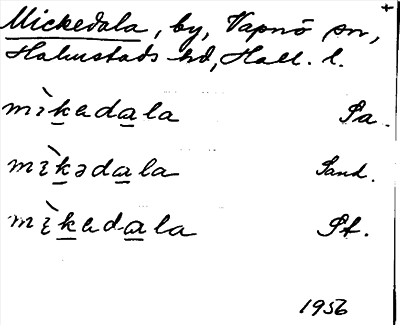 Mickedala, by, Vapnö sn,
Halmstads hd, Hall. l.
mìkadala Sa.
mìkədala Sand.
mìkadala St.
1956